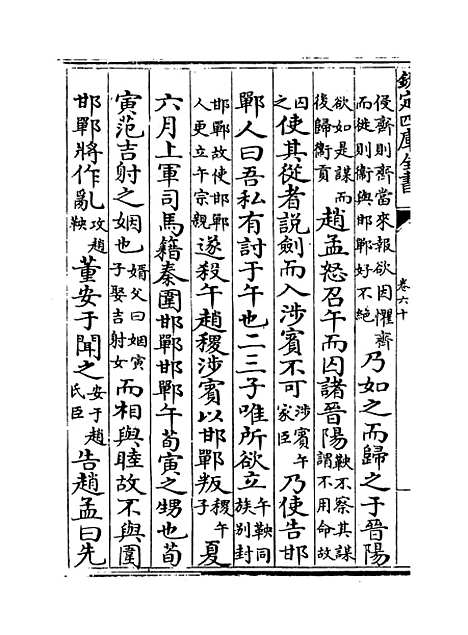 欽定四庫全書
卷六十
侵齊則齊當來報欲因懼齊
而徙則衛與邯鄲好不絕
乃如之而歸之于晉陽
欲如是謀而
後歸衛貢
趙孟怒召午而囚諸晉陽
鞅不察其謀
謂不用命故
囚
之
使其從者說劍而入涉賓不可
涉賓午
家臣
乃使告邯
鄲人曰吾私有討于午也二三子唯所欲立
午鞅同
族別封
邯鄲故使邯鄲
人更立午宗親
遂殺午趙稷涉賓以邯鄲叛
稷午
子
夏
六月上軍司馬籍秦圍邯鄲邯鄲午荀寅之甥也荀
寅范吉射之姻也
婿父曰姻寅
子娶吉射女
而相與睦故不與圍
邯鄲將作亂
攻趙
鞅
董安于聞之
安于趙
氏臣
告趙孟曰先